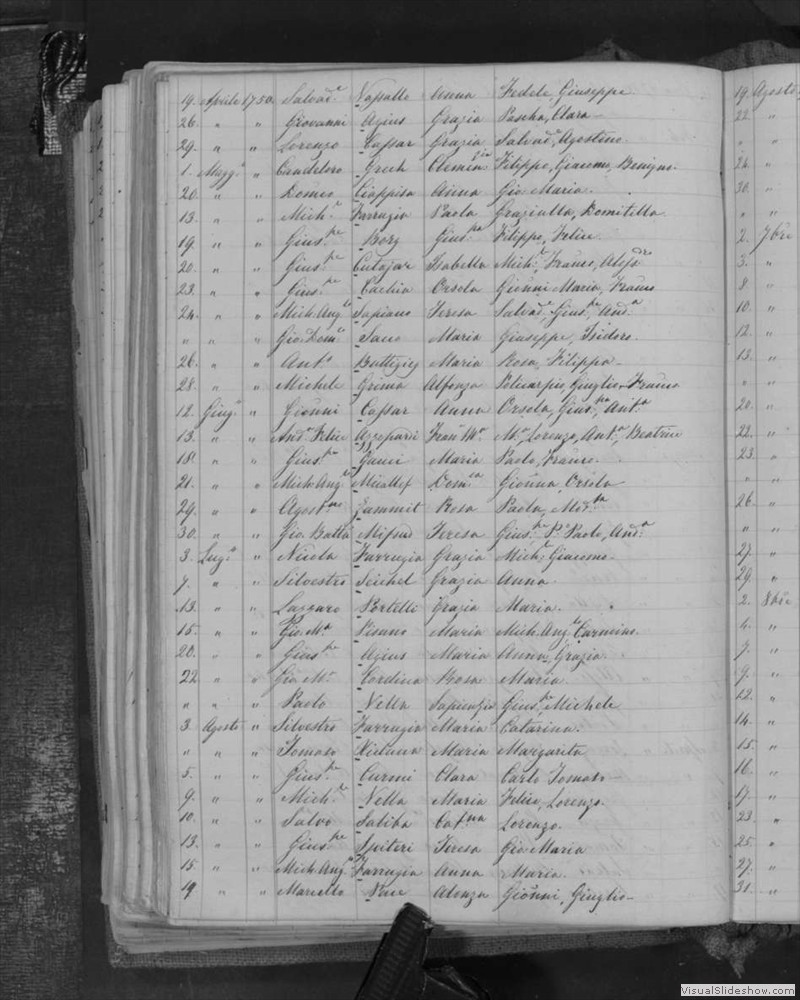 19. Aprile 1750. Salvad.e Vassallo Anna Fedele Giuseppe
26. " " Giovanni Agius Grazia Pascha, Clara
29. " " Lorenzo Cassar Grazia Salvad.e, Agostino.
1. Magg.o " Candeloro Grech Clemen Filippo, Giacomo, Benigno.
20. " " Romeo Ciappisa Anna Gio. Maria.
13. " " Mich.e Farrugia Paola Graziulla, Domitilla
19. " " Gius.pe Borg Gius.pa Filippo, Felice
20. " " Gius.pe Cutajar Isabella Mich.e, Franco,
23. " " Gius.pe Cachia Orsola Gionni Maria, Franco
24. " " Mich. Ang.lo Sapiano Teresa Salvad.e, Gius.pe, And.a
" " " Gio. Dom.o Maria Giuseppe, Isidoro.
26. " " Ant.o Buttigieg Maria Rosa, Filippa
28. " " Michele Grima Alfonza Policarpio, Giuglio, Franco
12. Giug.o " Gionni Cassar Anna Orsola, Gius.pa, Ant.a
13. " " And.a Felice Azzopardi Fran. M.a M.a Lorenzo, Ant.a Beatrice
18. " " Gius.pe Gauci Maria Paolo, Franco.
21. " " Mich. Ang.lo Micallef Dom.ca Gionna, Orsola
29. " " Agost.no Zammit Rosa Paola,
30. " " Gio. Batta Mifsud Teresa Gius.pe P. Paolo, And.a
3. Lug.o " Nicola Farrugia Grazia Mich.e Giacomo.
7. " " Silvestro Seichel Grazia Anna
13. " " Lazzaro Portelli Grazia Maria.
15. " " Gio. M.a Pisano Maria Mich. Ang.o Carmino.
20. " " Gius.pe Agius Maria Anna, Grazia.
22. " " Gio. M.a Cordina Rosa Maria
" " " Paolo Vella Sapienzia Gius.pe, Michele
3. Agosto " Silvestro Farrugia Maria Catarina.
" " " Tomaso Maria Margarita
5. " " Gius.pe Curmi Clara Carlo Tomaso
9. " " Mich.e Vella Maria Felice, Lorenzo.
10. " " Salvo Saliba Cat.na Lorenzo.
13. " " Gius.pe Spiteri Teresa Gio. Maria
15. " " Mich. Ang.o Farrugia Anna Maria.
19 " " Marcello Alonza Gionni, Giuglio
19 Agosto
22. "
" "
24. "
30. "
" "
2. 7bre
3. "
8 "
10. "
12. "
13. "
" "
20. "
22. "
23. "
" "
26. "
" "
27. "
29. "
2. 8bre
4. "
7. "
9. "
12. "
14. "
15. "
16. "
17. "
23. "
25. "
27. "
31. "
VisualSlideshow.com